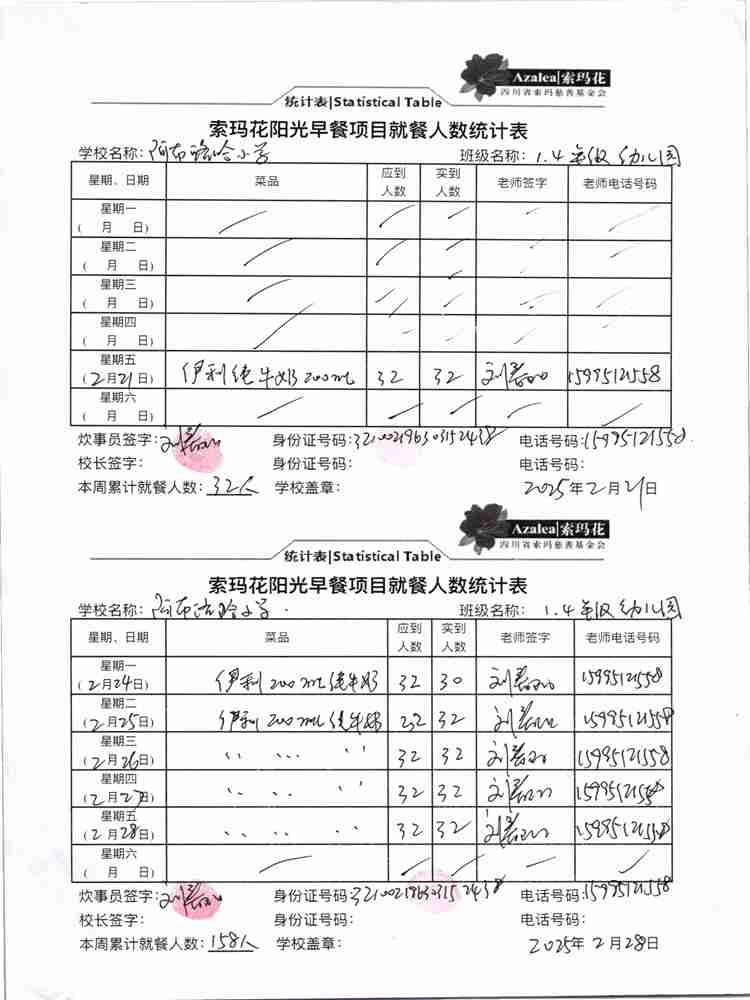 Azalea|索玛花
四川省索玛慈善基金会
统计表|Statistical Table
索玛花阳光早餐项目就餐人数统计表
学校名称: 阿布洛哈小学 班级名称: 1.4年级 幼儿园
星期、日期 菜品 应到人数 实到人数 老师签字 老师电话号码
星期一 ( 月 日)
星期二 ( 月 日)
星期三 ( 月 日)
星期四 ( 月 日)
星期五 (2月21日) 伊利纯牛奶200ml 32 32 15995121558
星期六 ( 月 日)
炊事员签字: 身份证号码: 电话号码:15995121558.
校长签字: 身份证号码: 电话号码:
本周累计就餐人数: 32人 学校盖章: 2025年2月21日
Azalea|索玛花
四川省索玛慈善基金会
统计表|Statistical Table
索玛花阳光早餐项目就餐人数统计表
学校名称: 阿布洛哈小学. 班级名称: 1.4年级 幼儿园
星期、日期 菜品 应到人数 实到人数 老师签字 老师电话号码
星期一 (2月24日) 伊利 200ml 纯牛奶 32 30 15995121558
星期二 (2月25日) 伊利 200ml 纯牛奶 32 32 15995121558
星期三 (2月26日) 〃 〃 〃 32 32 15995121558
星期四 (2月27日) 〃 〃 〃 32 32 15995121558
星期五 (2月28日) 〃 〃 〃 32 32 15995121558
星期六 ( 月 日)
炊事员签字: 身份证号码: 电话号码:15995121558
校长签字: 身份证号码: 电话号码:
本周累计就餐人数: 158人 学校盖章: 2025年2月28日